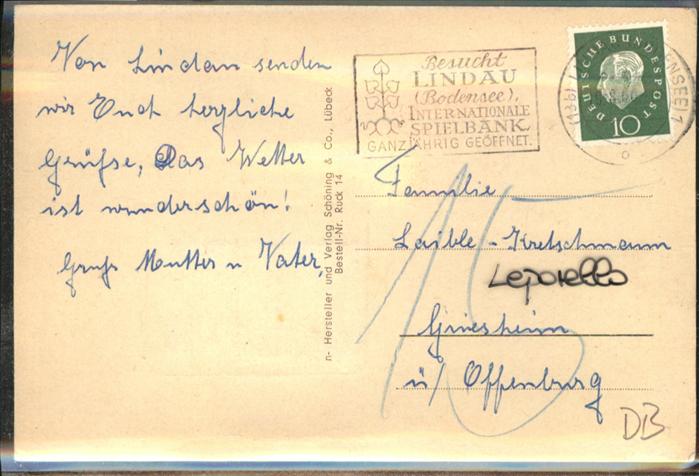 Von Lindau senden
wir Euch herzliche
Grüße, Das Wetter
ist wunderschön!
Gruß Mutter u Vater,
n- Hersteller und Verlag Schöning & Co., Lübeck
Bestell-Nr. Rück 14
Besucht
LINDAU
(Bodensee),
INTERNATIONALE
SPIELBANK,
GANZJÄHRIG GEÖFFNET.
DEUTSCHE BUNDESPOST
10
(13b)
Familie
Laible-Kretschmann
Leporello
Griesheim
ü/ Offenburg
15
DB